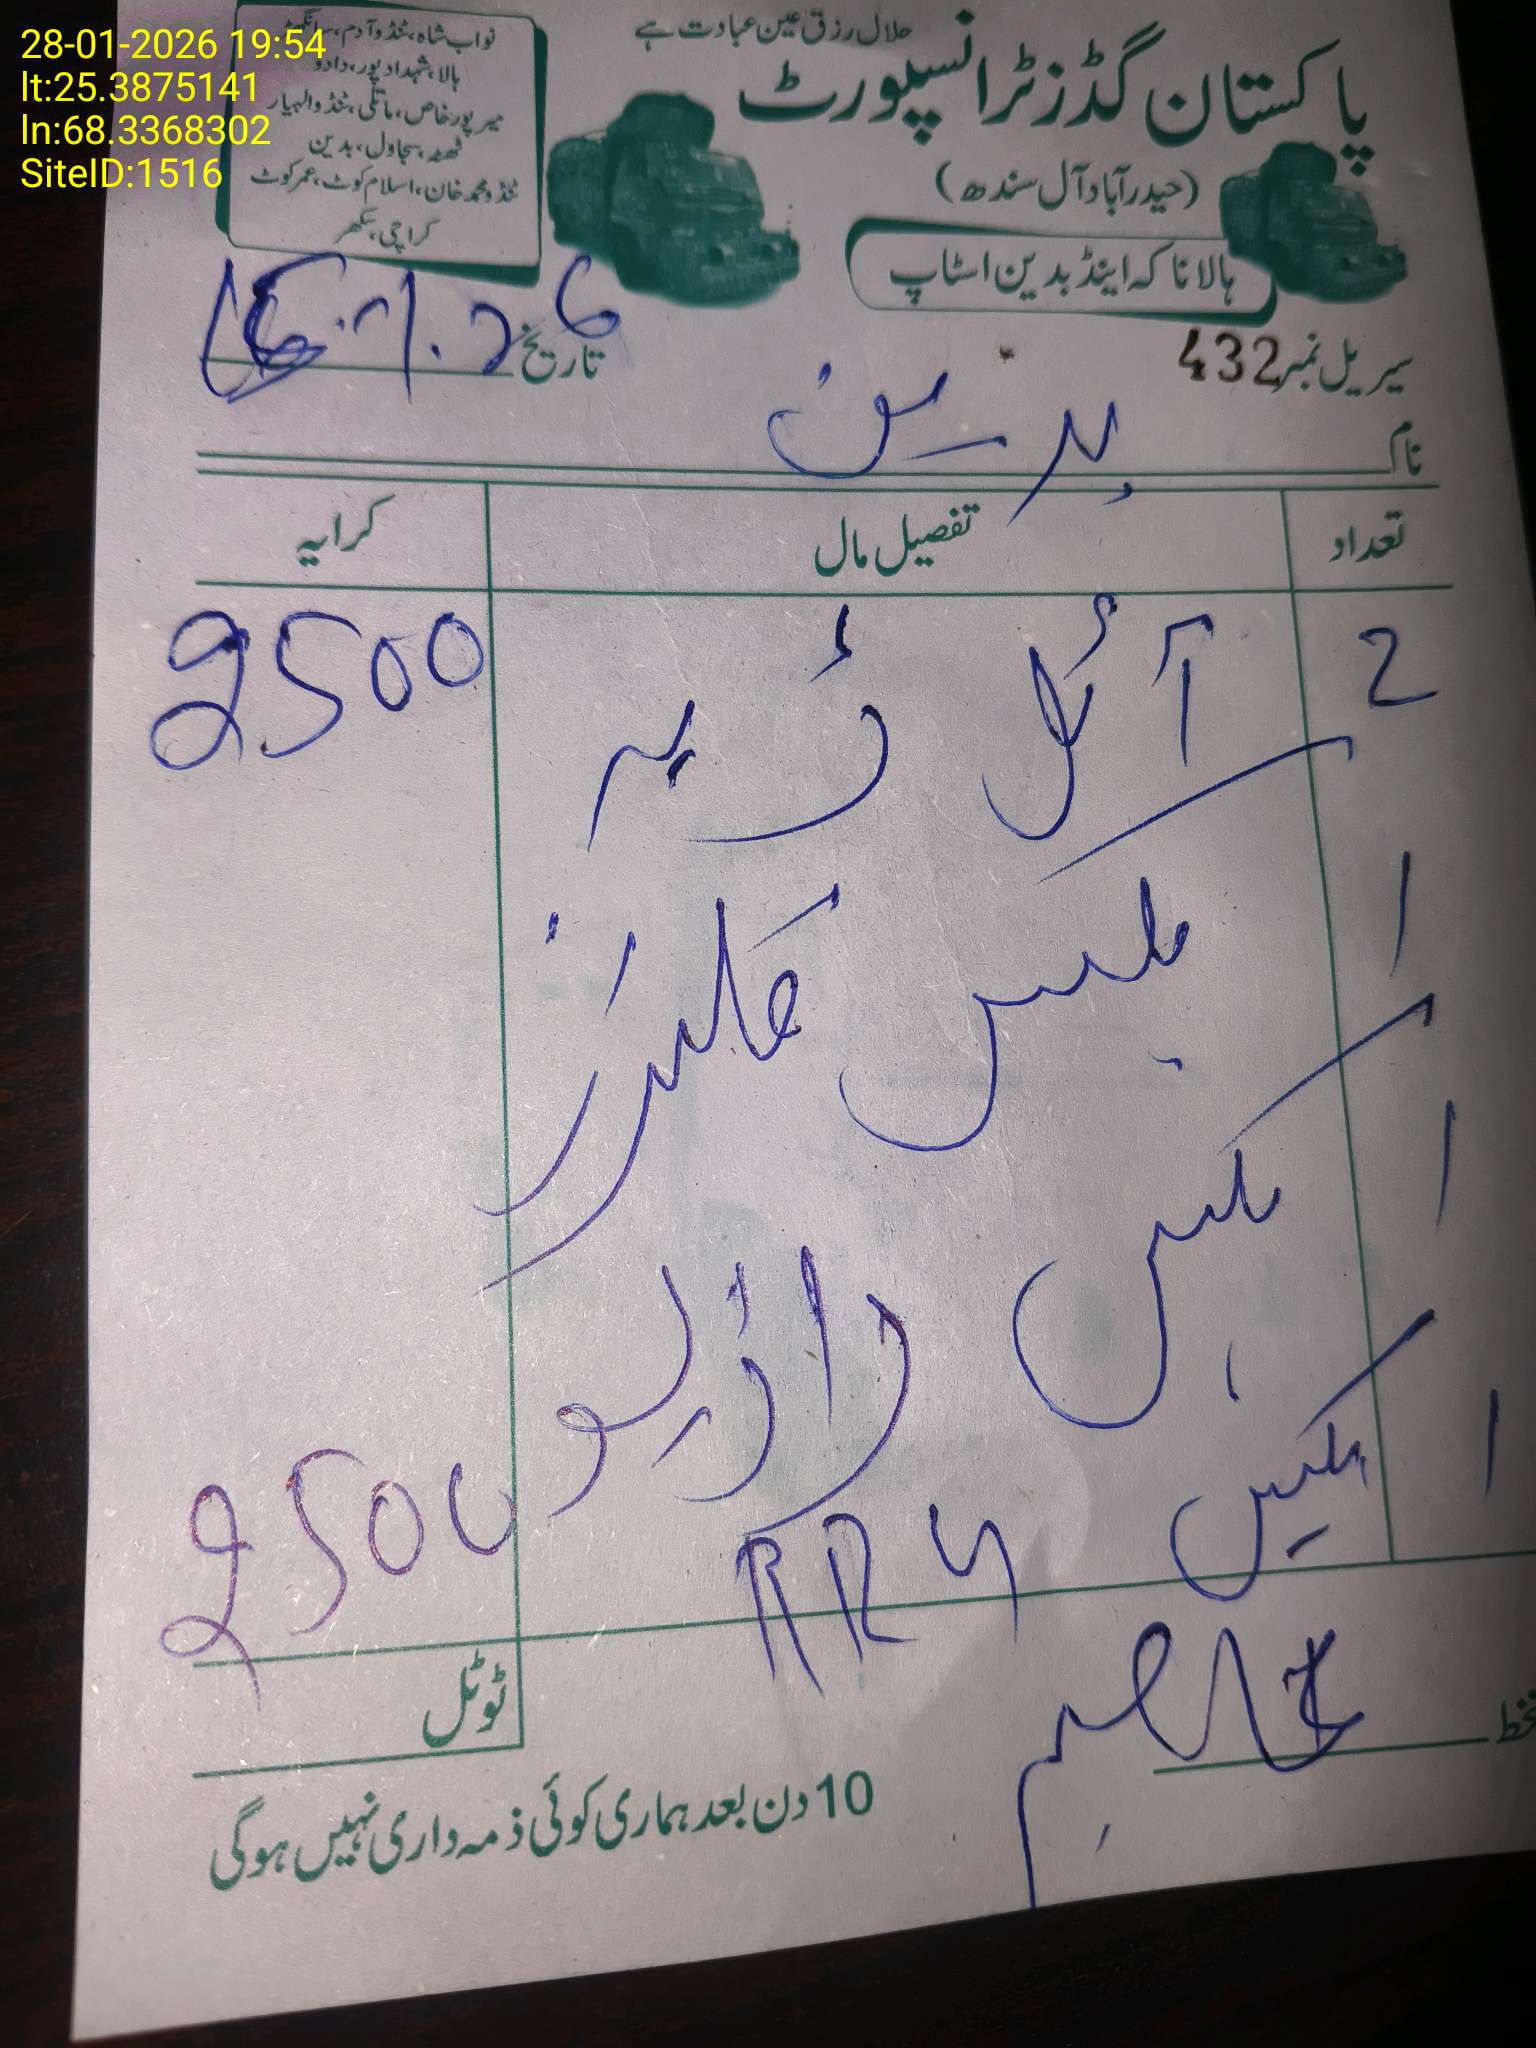 28-01-2026 19:54
lt:25.3875141
ln:68.3368302
SiteID:1516
حلال رزق عین عبادت ہے
پاکستان گڈز ٹرانسپورٹ
(حیدرآباد آل سندھ)
ہالا ناکہ اینڈ بدین اسٹاپ
نواب شاہ، ٹنڈو آدم، سانگھڑ
ہالا، شہداد پور، دادو
میرپور خاص، ماتلی، ٹنڈوالہیار
ٹھٹہ، سجاول، بدین
ٹنڈو محمد خان، اسلام کوٹ، عمر کوٹ
کراچی، سکھر
سیریل نمبر 432
تاریخ
نام بدین
تعداد تفصیل مال کرایہ
2 آئل 2500
1 بکس
1 بکس
1 بکس RR4
2500
ٹوٹل
10 دن بعد ہماری کوئی ذمہ داری نہیں ہوگی